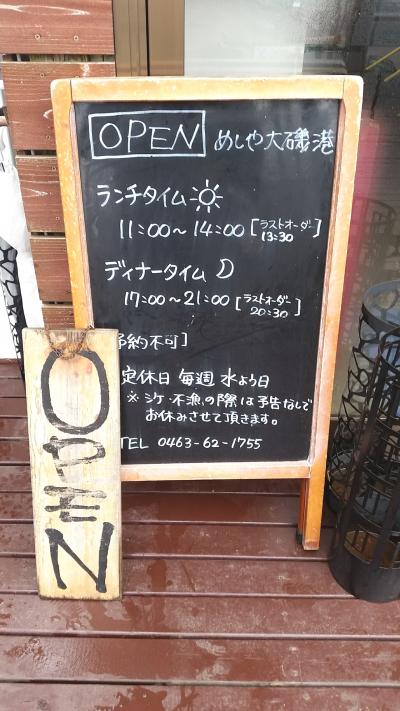 OPEN めしや大磯港
ランチタイム
11:00〜14:00 [ラストオーダー 13:30]
ディナータイム
17:00〜21:00 [ラストオーダー 20:30]
予約不可]
定休日 毎週 水よう日
※シケ・不漁の際は予告なしで
お休みさせて頂きます。
TEL 0463-62-1755
OPEN